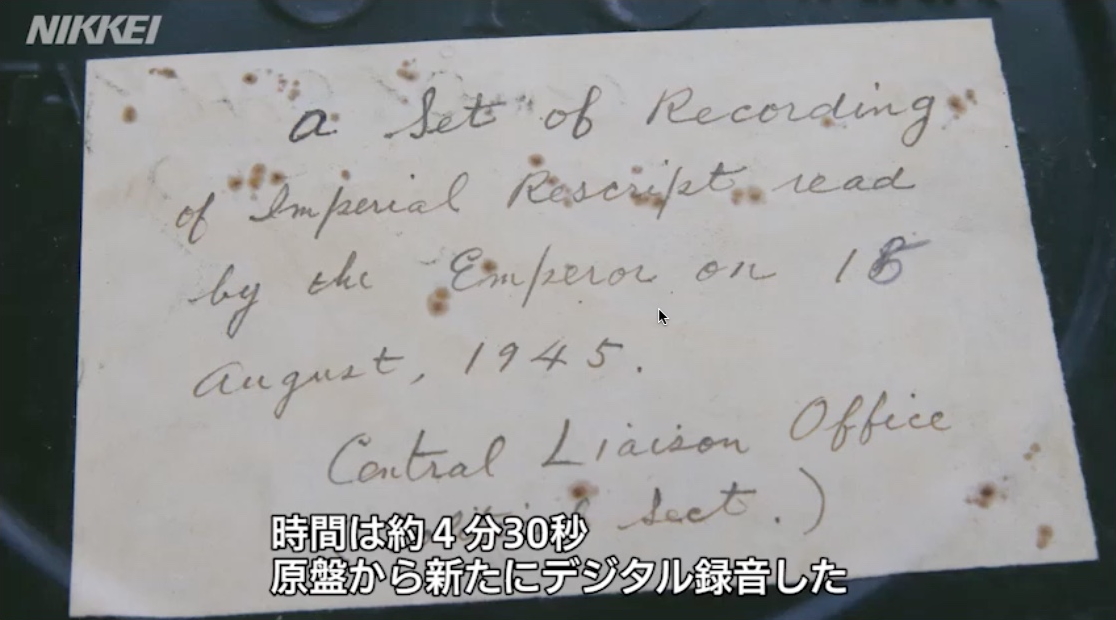 NIKKEI
a Set of Recording
of Imperial Rescript read
by the Emperor on 15
August, 1945.
Central Liaison Office
Sect.)
時間は約４分30秒
原盤から新たにデジタル録音した